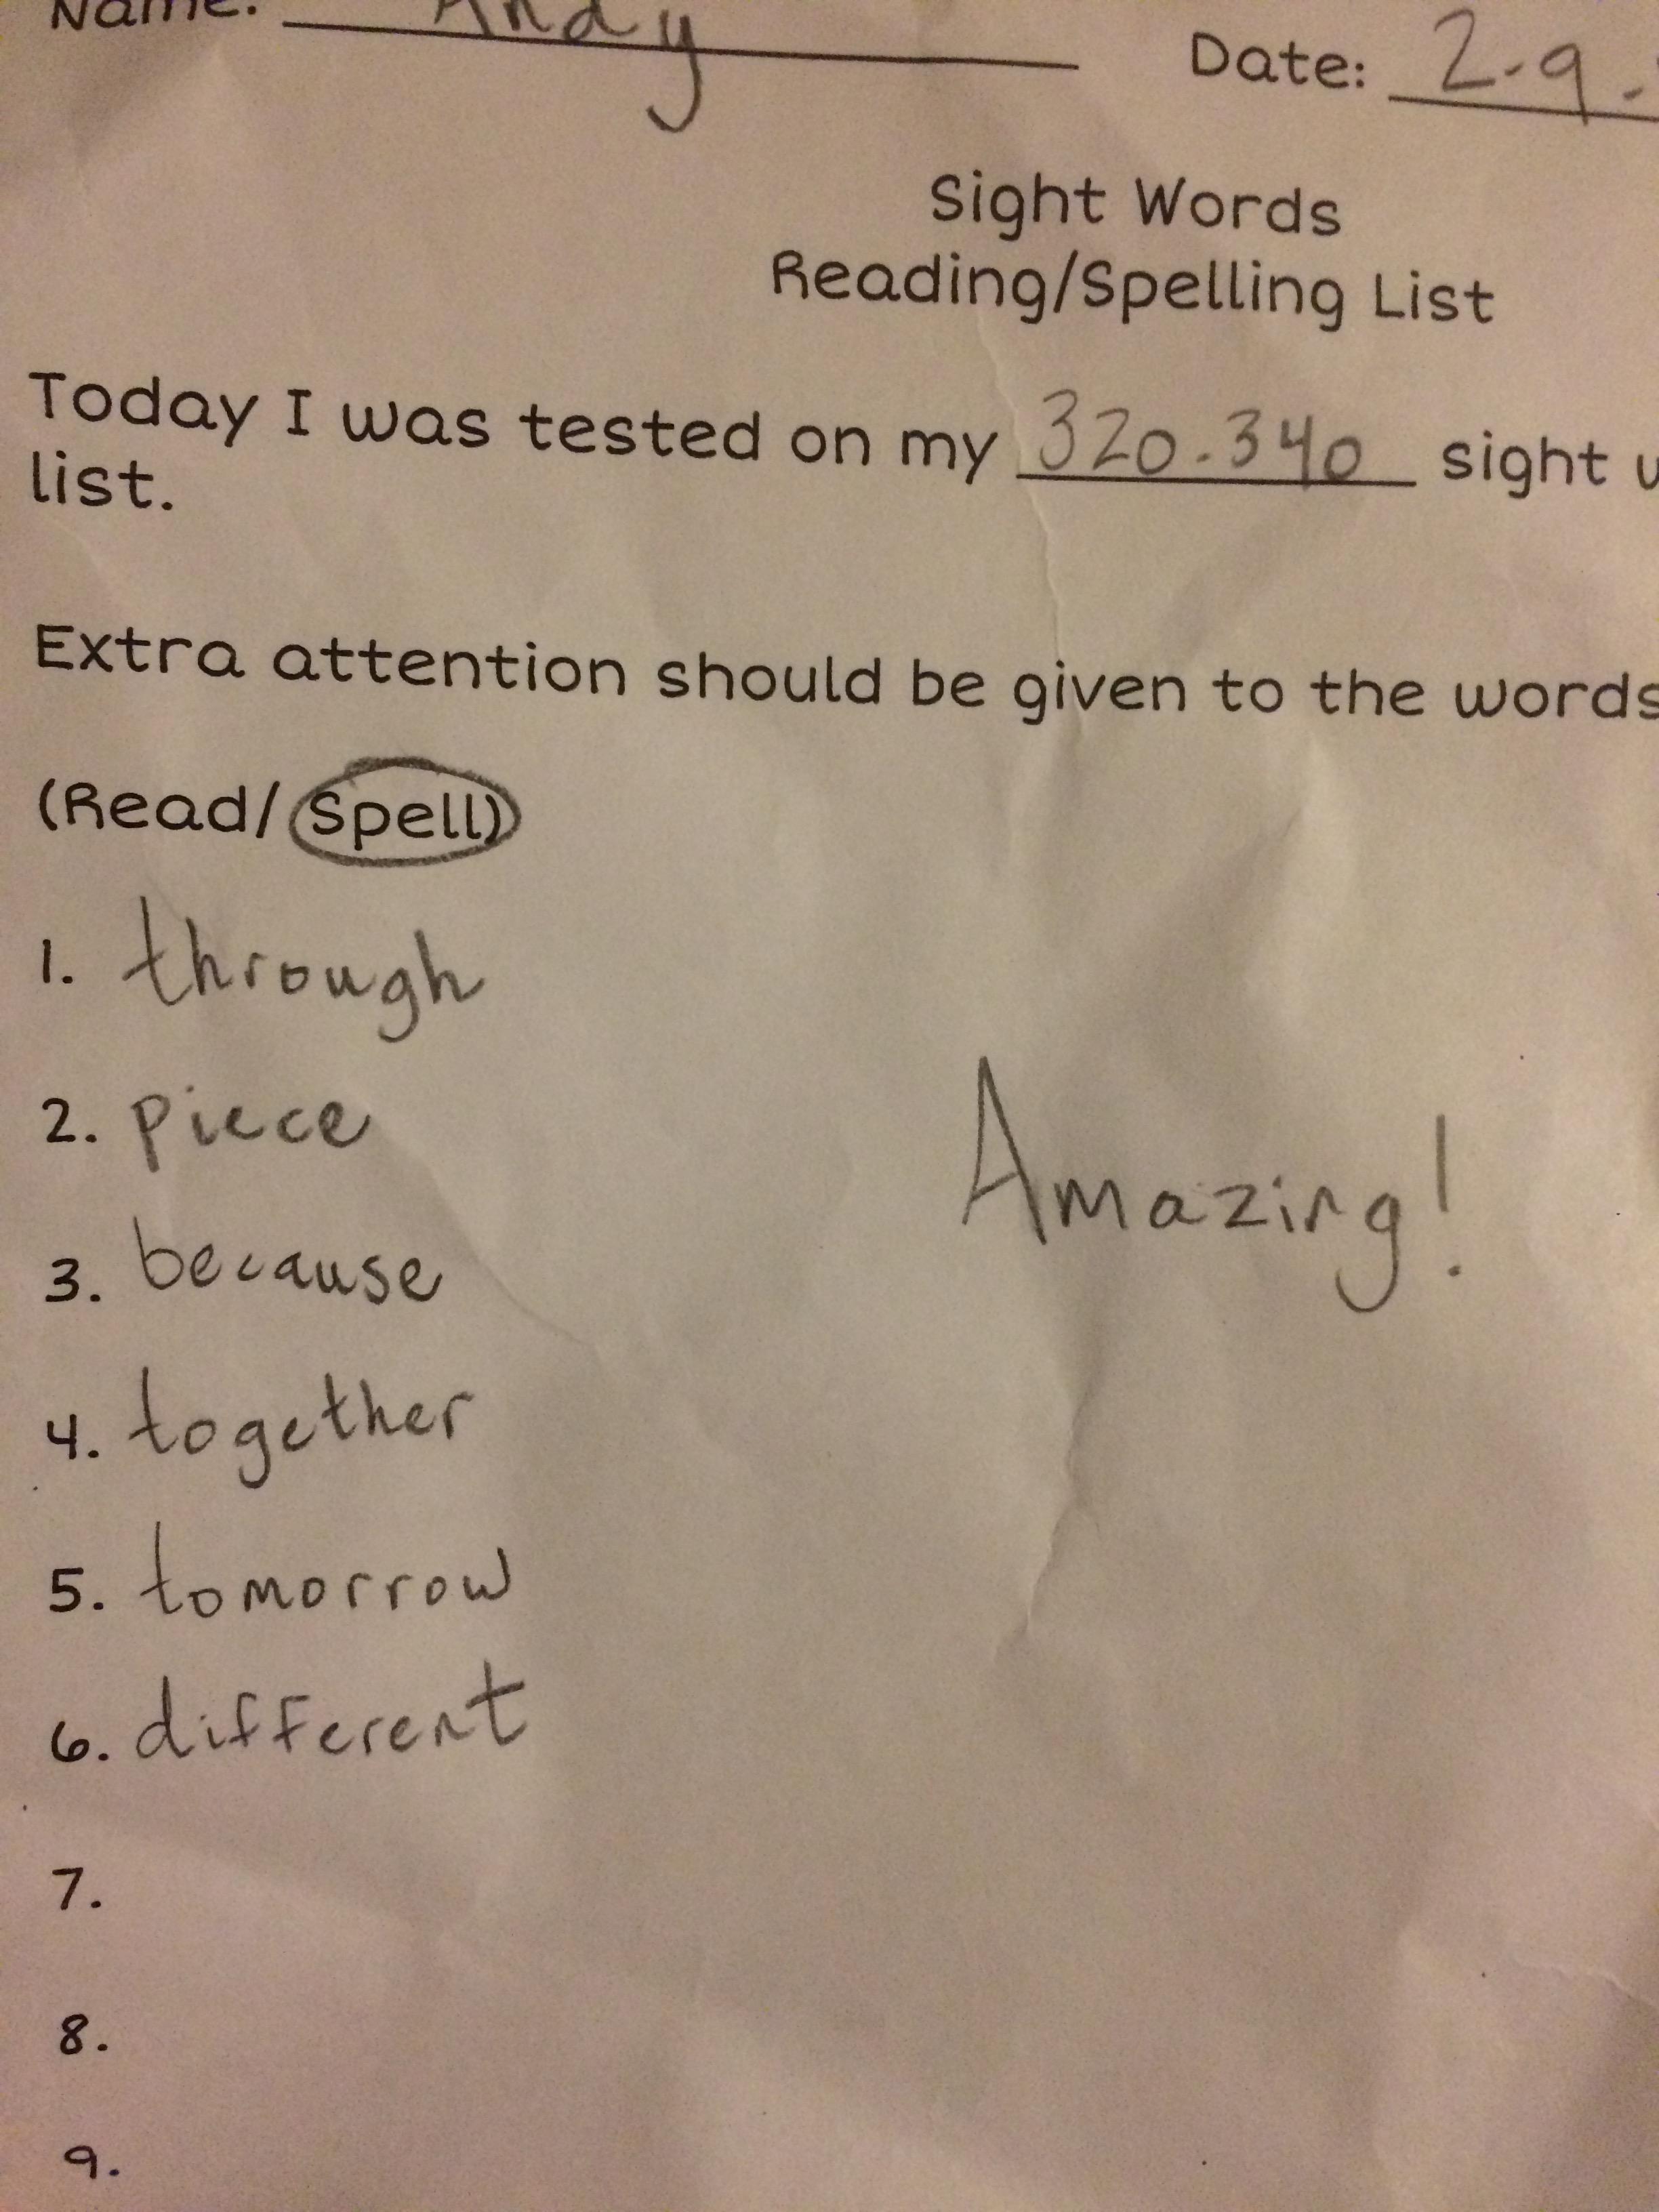 Name: Andy Date: 2-9.
Sight Words
Reading/Spelling List
Today I was tested on my 320-340 sight
list.
Extra attention should be given to the words
(Read/ Spell)
1. through
2. piece
3. because
Amazing!
4. together
5. tomorrow
6. different
7.
8.
9.